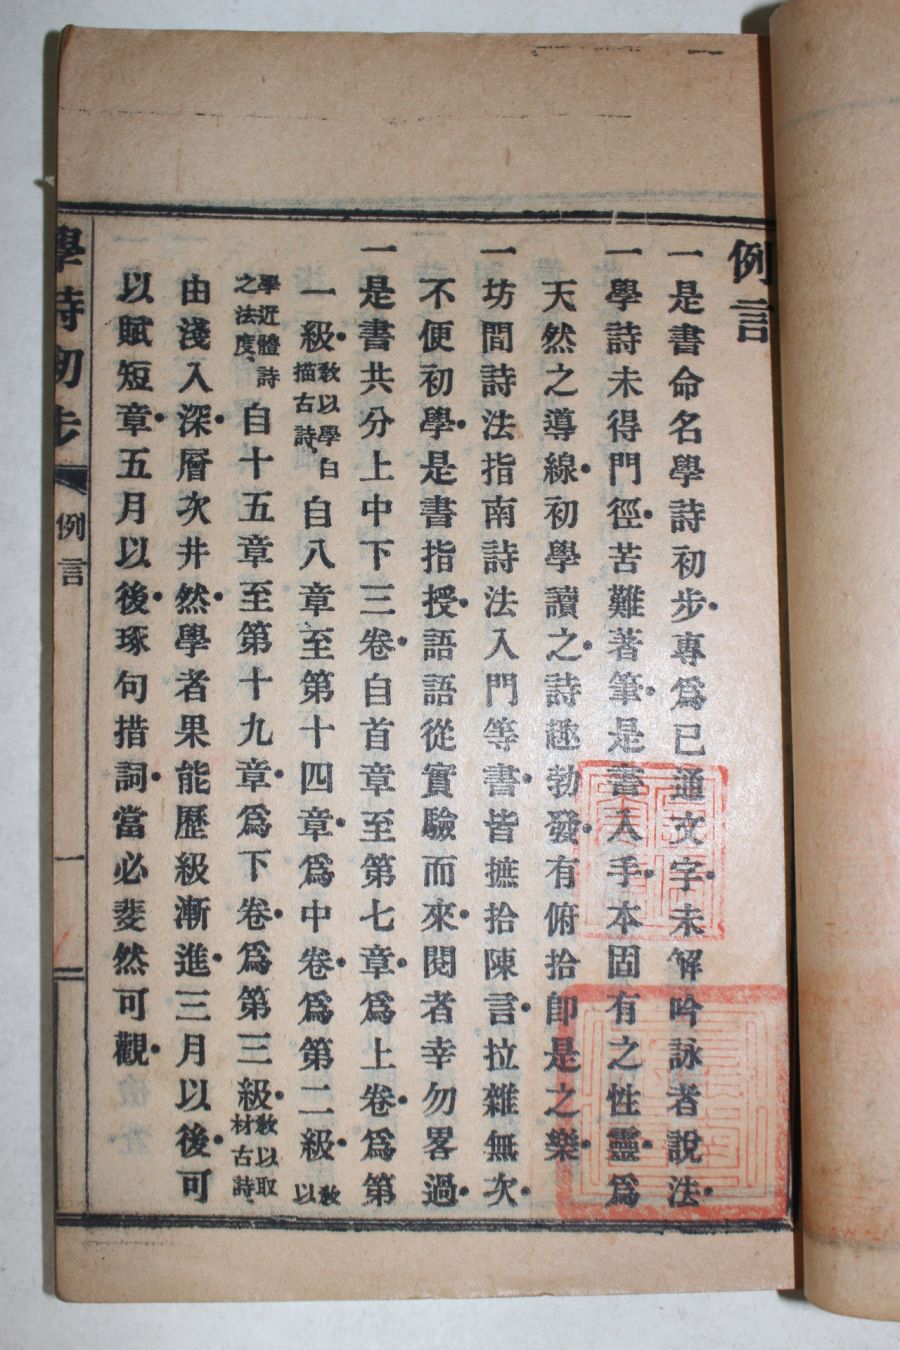 例言
一是書命名學詩初步。專爲已通文字。未解吟詠者說法。
一學詩未得門徑。苦難著筆。是書入手。本固有之性靈。爲
天然之導線。初學讀之。詩趣勃發。有俯拾卽是之樂。
一坊間詩法指南詩法入門等書。皆摭拾陳言。拉雜無次。
不便初學。是書指授。語語從實驗而來。閱者幸勿畧過。
一是書共分上中下三卷。自首章至第七章。爲上卷。爲第
一級。教以學白描古詩、自八章至第十四章。爲中卷。爲第二級。教以
學近體詩之法度、自十五章至第十九章。爲下卷。爲第三級。教以取材古詩、
由淺入深。層次井然。學者果能歷級漸進。三月以後。可
以賦短章。五月以後。琢句措詞。當必斐然可觀。
學詩初步 例言 一